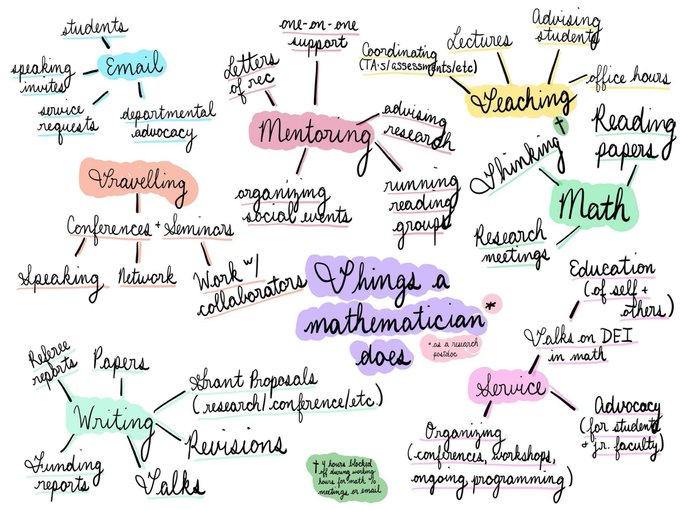 students
Email
speaking
invites
service
requests
departmental
advocacy
one-on-one
support
Letters
of rec
Mentoring
advising
research
organizing
social events
running
reading
groups
Coordinating
(TA's/assessments/etc)
Lectures
Advising
students
office hours
Teaching
†
Reading
papers
Thinking
Math
Research
meetings
Travelling
Conferences + Seminars
Speaking
Network
Work w/
collaborators
Things a
mathematician*
does
* as a research
postdoc
Education
(of self +
others)
Talks on DEI
in math
Service
Organizing
(conferences, workshops,
ongoing programming)
Advocacy
(for students
+ jr. faculty)
Referee
reports
Papers
Grant Proposals
(research/conference/etc.)
Writing
Revisions
Funding
reports
Talks
† 4 hours blocked
off during working
hours for math w/o
meetings or email